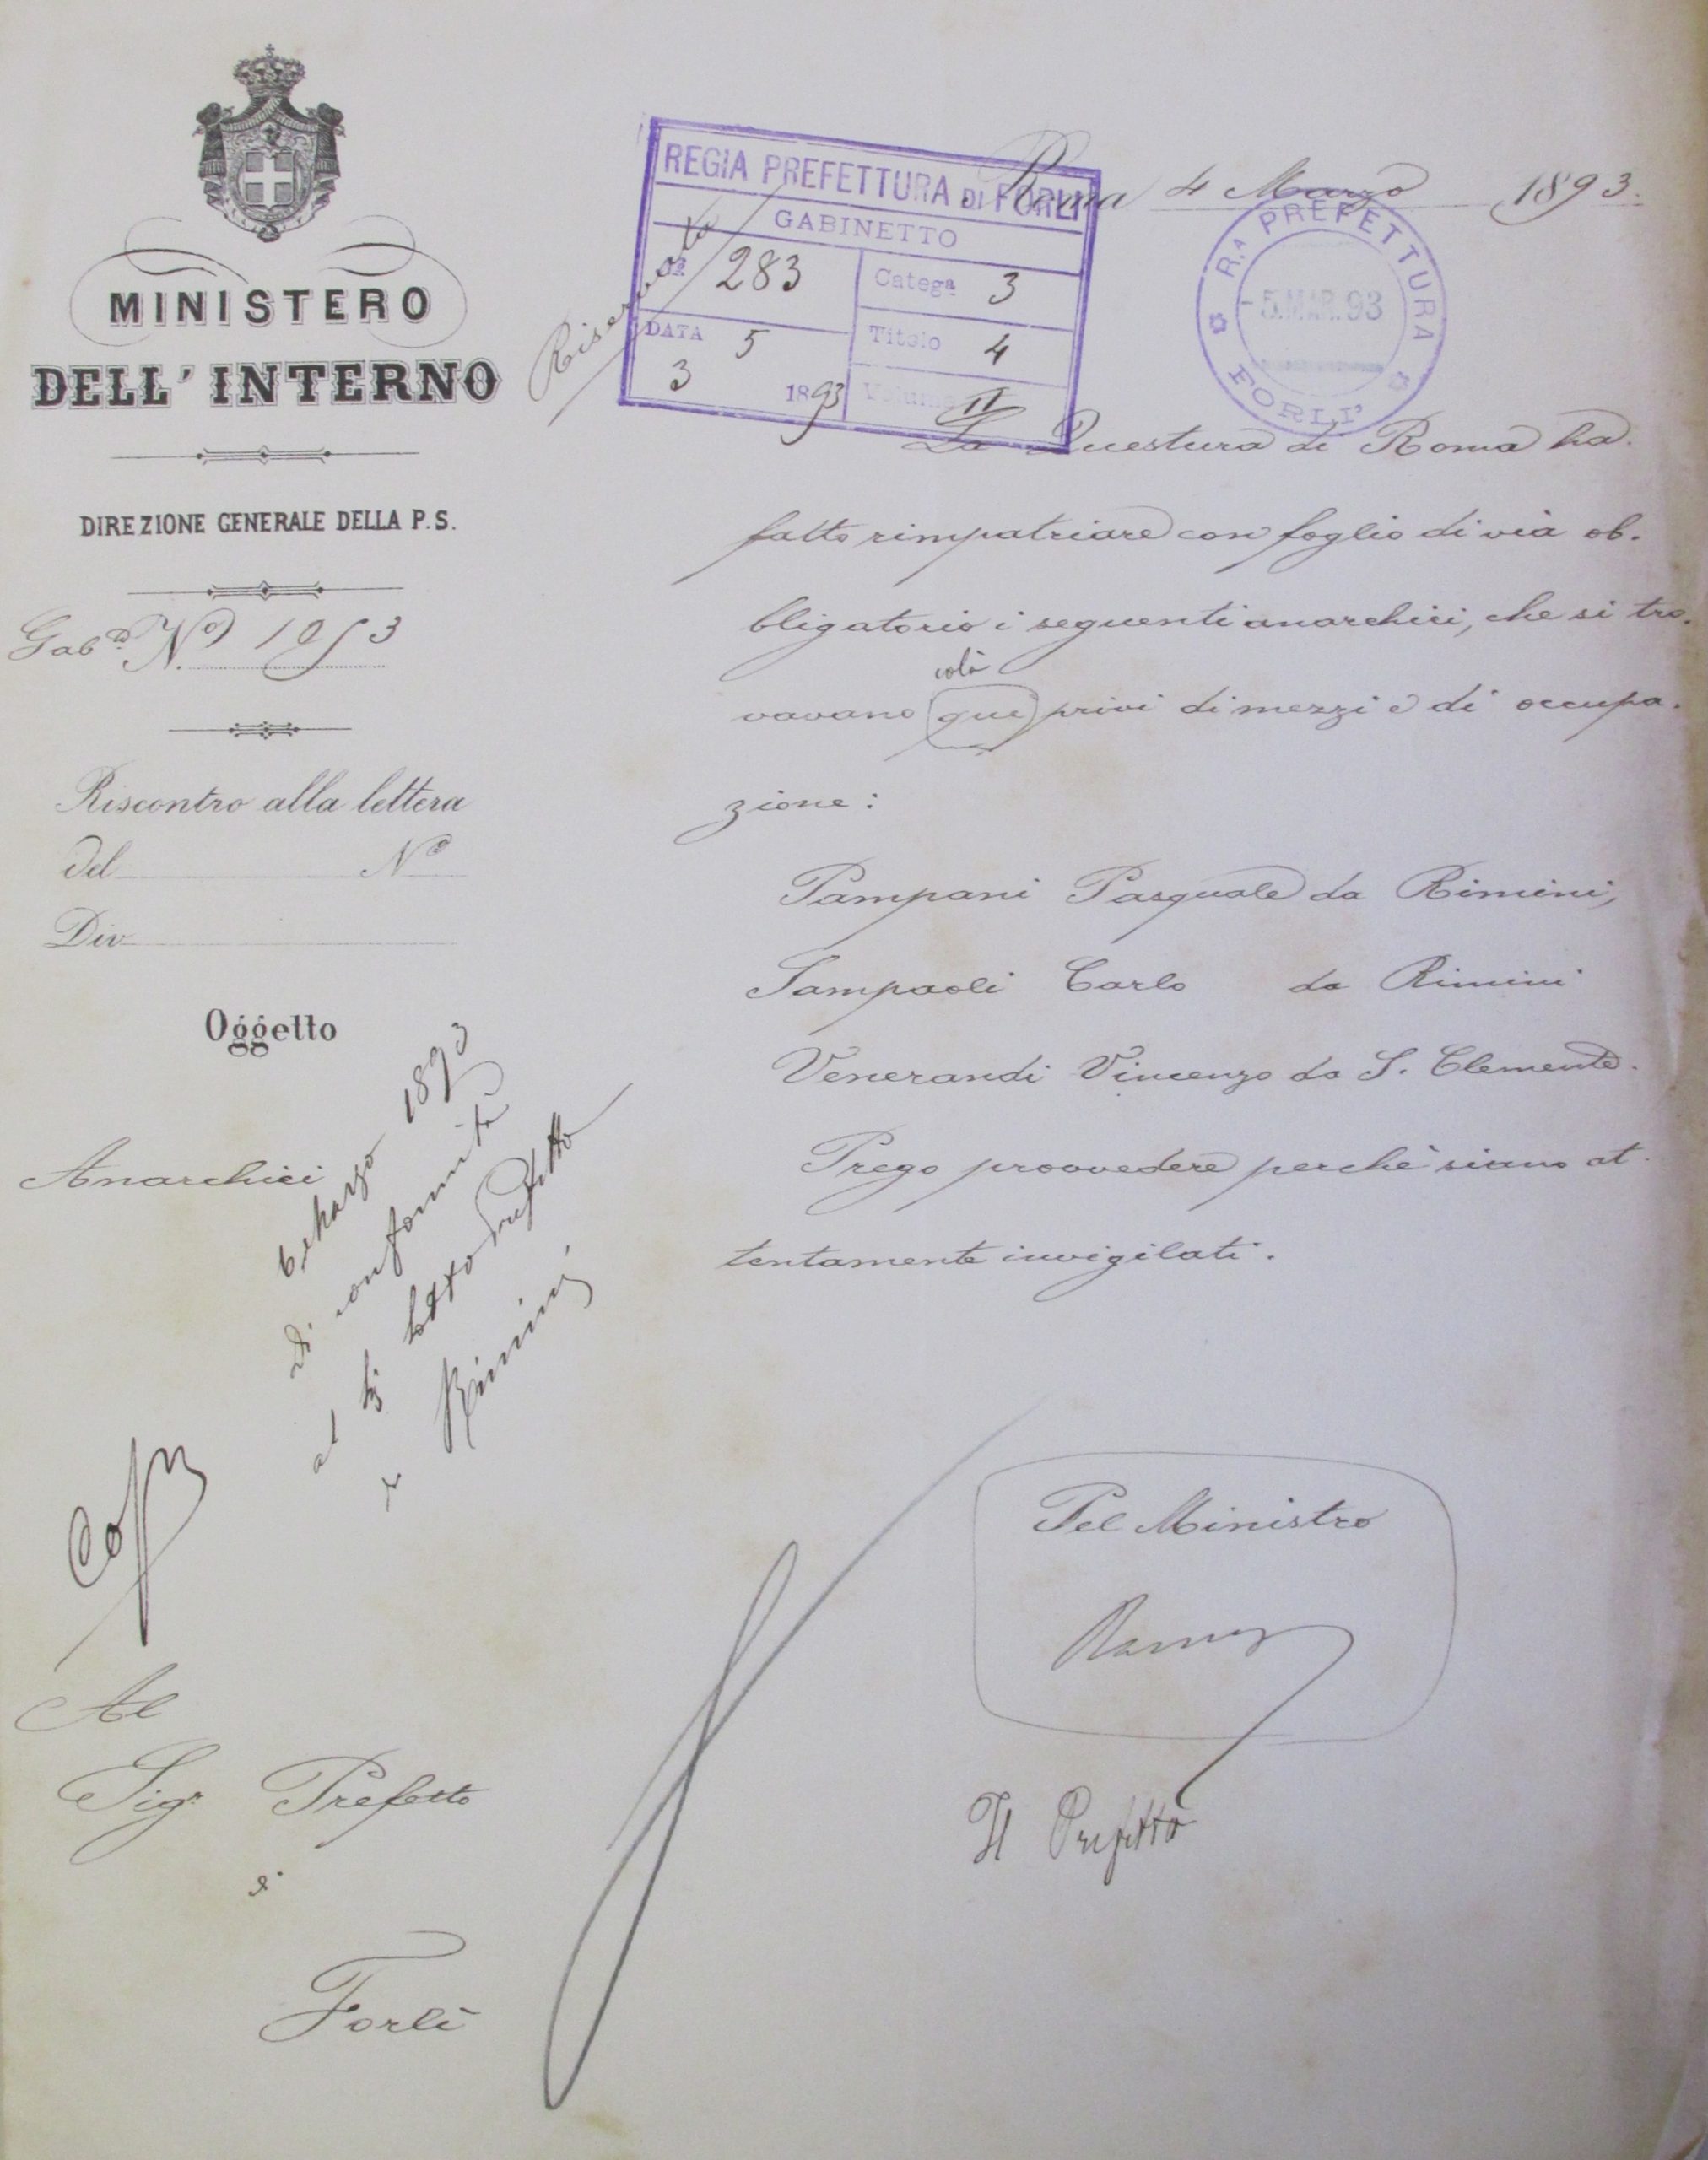 MINISTERO
DELL' INTERNO
DIREZIONE GENERALE DELLA P.S.
Gab.to N.o 1053
Riscontro alla lettera
del N.o
Div
Oggetto
Anarchici
6 Marzo 1893
Di conformità
al Sotto Prefetto
Rimini
Al
Sigr. Prefetto
di
Forlì
Riservata
REGIA PREFETTURA DI FORLI
GABINETTO
No 283
Catega 3
DATA 5
3 1893
Titolo 4
Volume II
Roma 4 Marzo 1893.
R.A PREFETTURA
-5.MAR.93
FORLI'
La Questura di Roma ha
fatto rimpatriare con foglio di via ob-
bligatorio i seguenti anarchici, che si tro-
colà
vavano qui privi di mezzi e di occupa-
zione:
Pampani Pasquale da Rimini,
Sampaoli Carlo da Rimini
Venerandi Vincenzo da S. Clemente.
Prego provvedere perchè siano at-
tentamente invigilati.
Pel Ministro
Il Prefetto